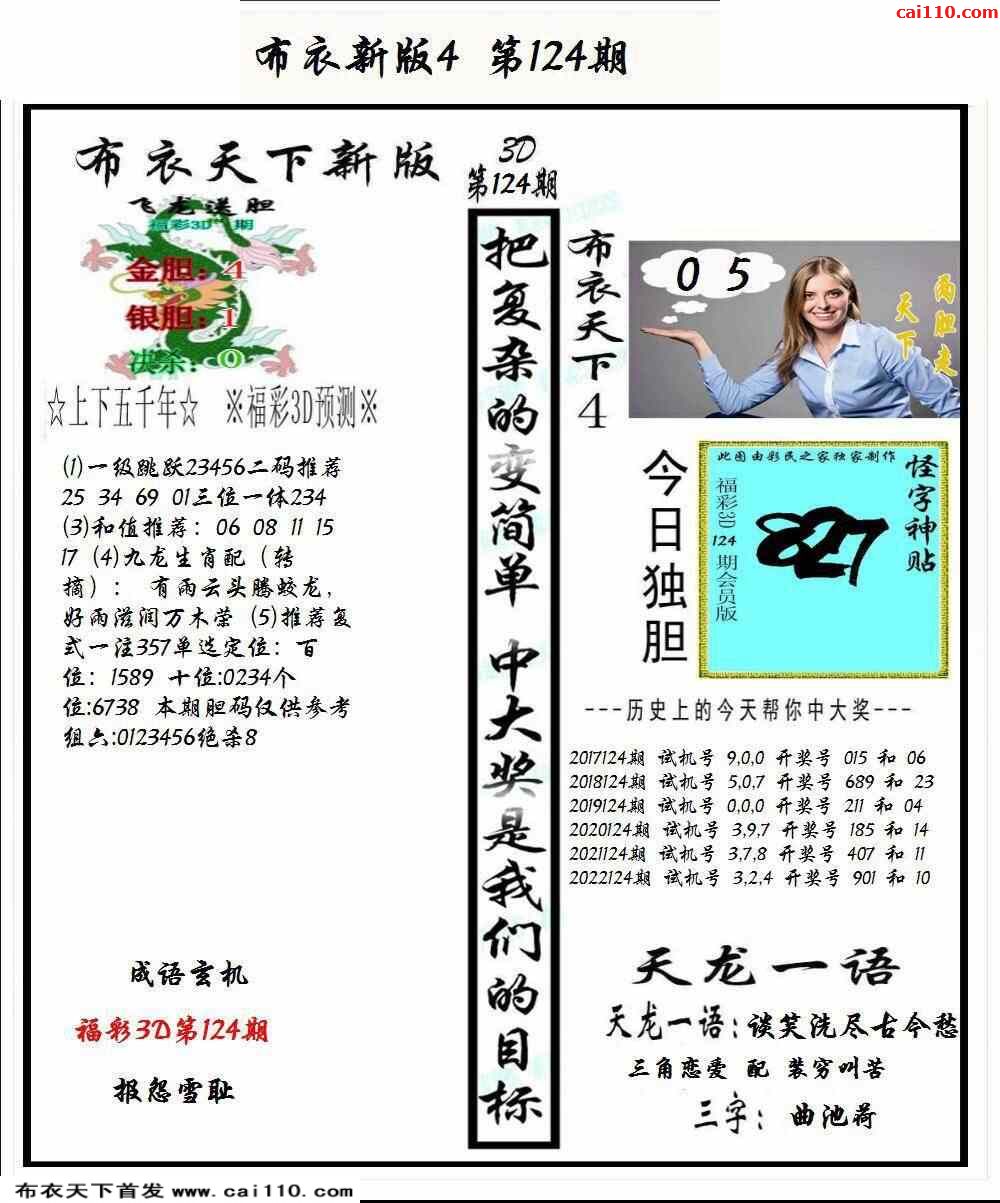 cai110.com
布衣新版4 第124期
布衣天下新版
飞龙送胆
福彩3D 期
金胆：4
银胆：1
决杀：0
☆上下五千年☆ ※福彩3D预测※
(1)一级跳跃23456二码推荐
25 34 69 01三位一体234
(3)和值推荐：06 08 11 15
17 (4)九龙生肖配（转
摘）： 有雨云头腾蛟龙，
好雨滋润万木荣 (5)推荐复
式一注357单选定位：百
位：1589 十位:0234个
位:6738 本期胆码仅供参考
组六:0123456绝杀8
成语玄机
福彩3D第124期
报怨雪耻
3D
第124期
把复杂的变简单 中大奖是我们的目标
布衣天下4
0 5
两胆走
天下
今日独胆
此图由彩民之家独家制作
怪字神贴
福彩3D 124 期会员版
827
---历史上的今天帮你中大奖---
2017124期 试机号 9,0,0 开奖号 015 和 06
2018124期 试机号 5,0,7 开奖号 689 和 23
2019124期 试机号 0,0,0 开奖号 211 和 04
2020124期 试机号 3,9,7 开奖号 185 和 14
2021124期 试机号 3,7,8 开奖号 407 和 11
2022124期 试机号 3,2,4 开奖号 901 和 10
天龙一语
天龙一语：谈笑洗尽古今愁
三角恋爱 配 装穷叫苦
三字： 曲池荷
布衣天下首发 www.cai110.com